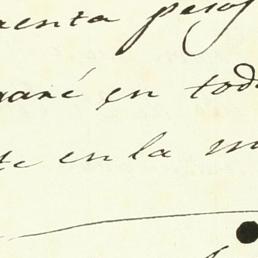 renta pesos
naré en tod
te en la m